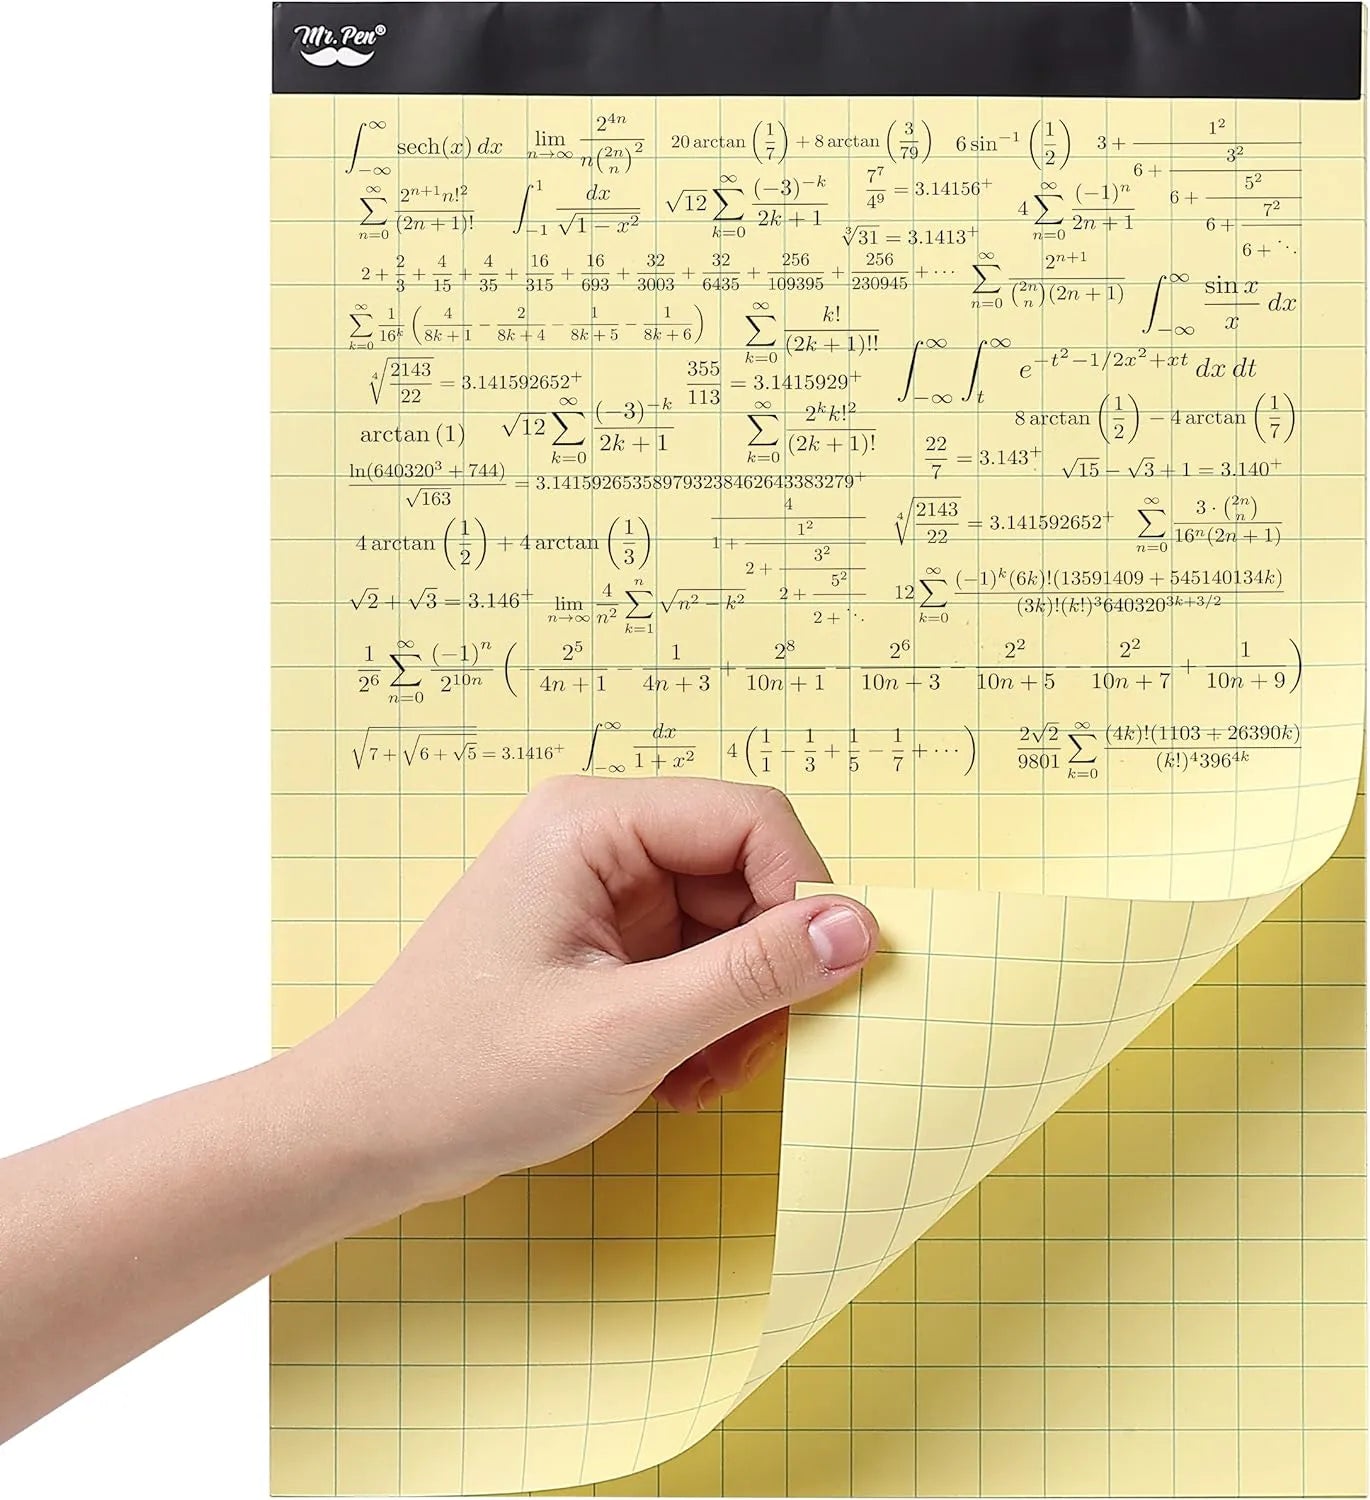 Mr. Pen®
∫_{-∞}^{∞} sech(x) dx   lim_{n→∞} 2^{4n} / (n \binom{2n}{n}^2)   20 arctan(1/7) + 8 arctan(3/79)   6 sin^{-1}(1/2)   3 + 1^2/(6 + 3^2/(6 + 5^2/(6 + 7^2/(6 + ⋱))))
∑_{n=0}^{∞} 2^{n+1} n!^2 / (2n+1)!   ∫_{-1}^{1} dx/√(1 − x^2)   √12 ∑_{k=0}^{∞} (−3)^{−k} / (2k+1)   7^7/4^9 = 3.14156^+   4 ∑_{n=0}^{∞} (−1)^n / (2n+1)
∛31 = 3.1413^+
2 + 2/3 + 4/15 + 4/35 + 16/315 + 16/693 + 32/3003 + 32/6435 + 256/109395 + 256/230945 + ⋯   ∑_{n=0}^{∞} 2^{n+1} / (\binom{2n}{n}(2n+1))   ∫_{-∞}^{∞} sin x / x dx
∑_{k=0}^{∞} 1/16^k (4/(8k+1) − 2/(8k+4) − 1/(8k+5) − 1/(8k+6))   ∑_{k=0}^{∞} k!/(2k+1)!!   ∫_{-∞}^{∞} ∫_{t}^{∞} e^{−t^2−1/2x^2+xt} dx dt
∜(2143/22) = 3.141592652^+   355/113 = 3.1415929^+
arctan(1)   √12 ∑_{k=0}^{∞} (−3)^{−k} / (2k+1)   ∑_{k=0}^{∞} 2^k k!^2 / (2k+1)!   8 arctan(1/2) − 4 arctan(1/7)
22/7 = 3.143^+   √15 − √3 + 1 = 3.140^+
ln(640320^3 + 744)/√163 = 3.14159265358979323846264338​3279^+
4 arctan(1/2) + 4 arctan(1/3)   4/(1 + 1^2/(2 + 3^2/(2 + 5^2/(2 + ⋱))))   ∜(2143/22) = 3.141592652^+   ∑_{n=0}^{∞} 3·\binom{2n}{n} / (16^n(2n+1))
√2 + √3 = 3.146^+   lim_{n→∞} 4/n^2 ∑_{k=1}^{n} √(n^2 − k^2)   12 ∑_{k=0}^{∞} (−1)^k(6k)!(13591409 + 545140134k) / ((3k)!(k!)^3 640320^{3k+3/2})
1/2^6 ∑_{n=0}^{∞} (−1)^n/2^{10n} (−2^5/(4n+1) − 1/(4n+3) + 2^8/(10n+1) − 2^6/(10n+3) − 2^2/(10n+5) − 2^2/(10n+7) + 1/(10n+9))
√(7 + √(6 + √5)) = 3.1416^+   ∫_{-∞}^{∞} dx/(1 + x^2)   4(1/1 − 1/3 + 1/5 − 1/7 + ⋯)   2√2/9801 ∑_{k=0}^{∞} (4k)!(1103 + 26390k) / ((k!)^4 396^{4k})